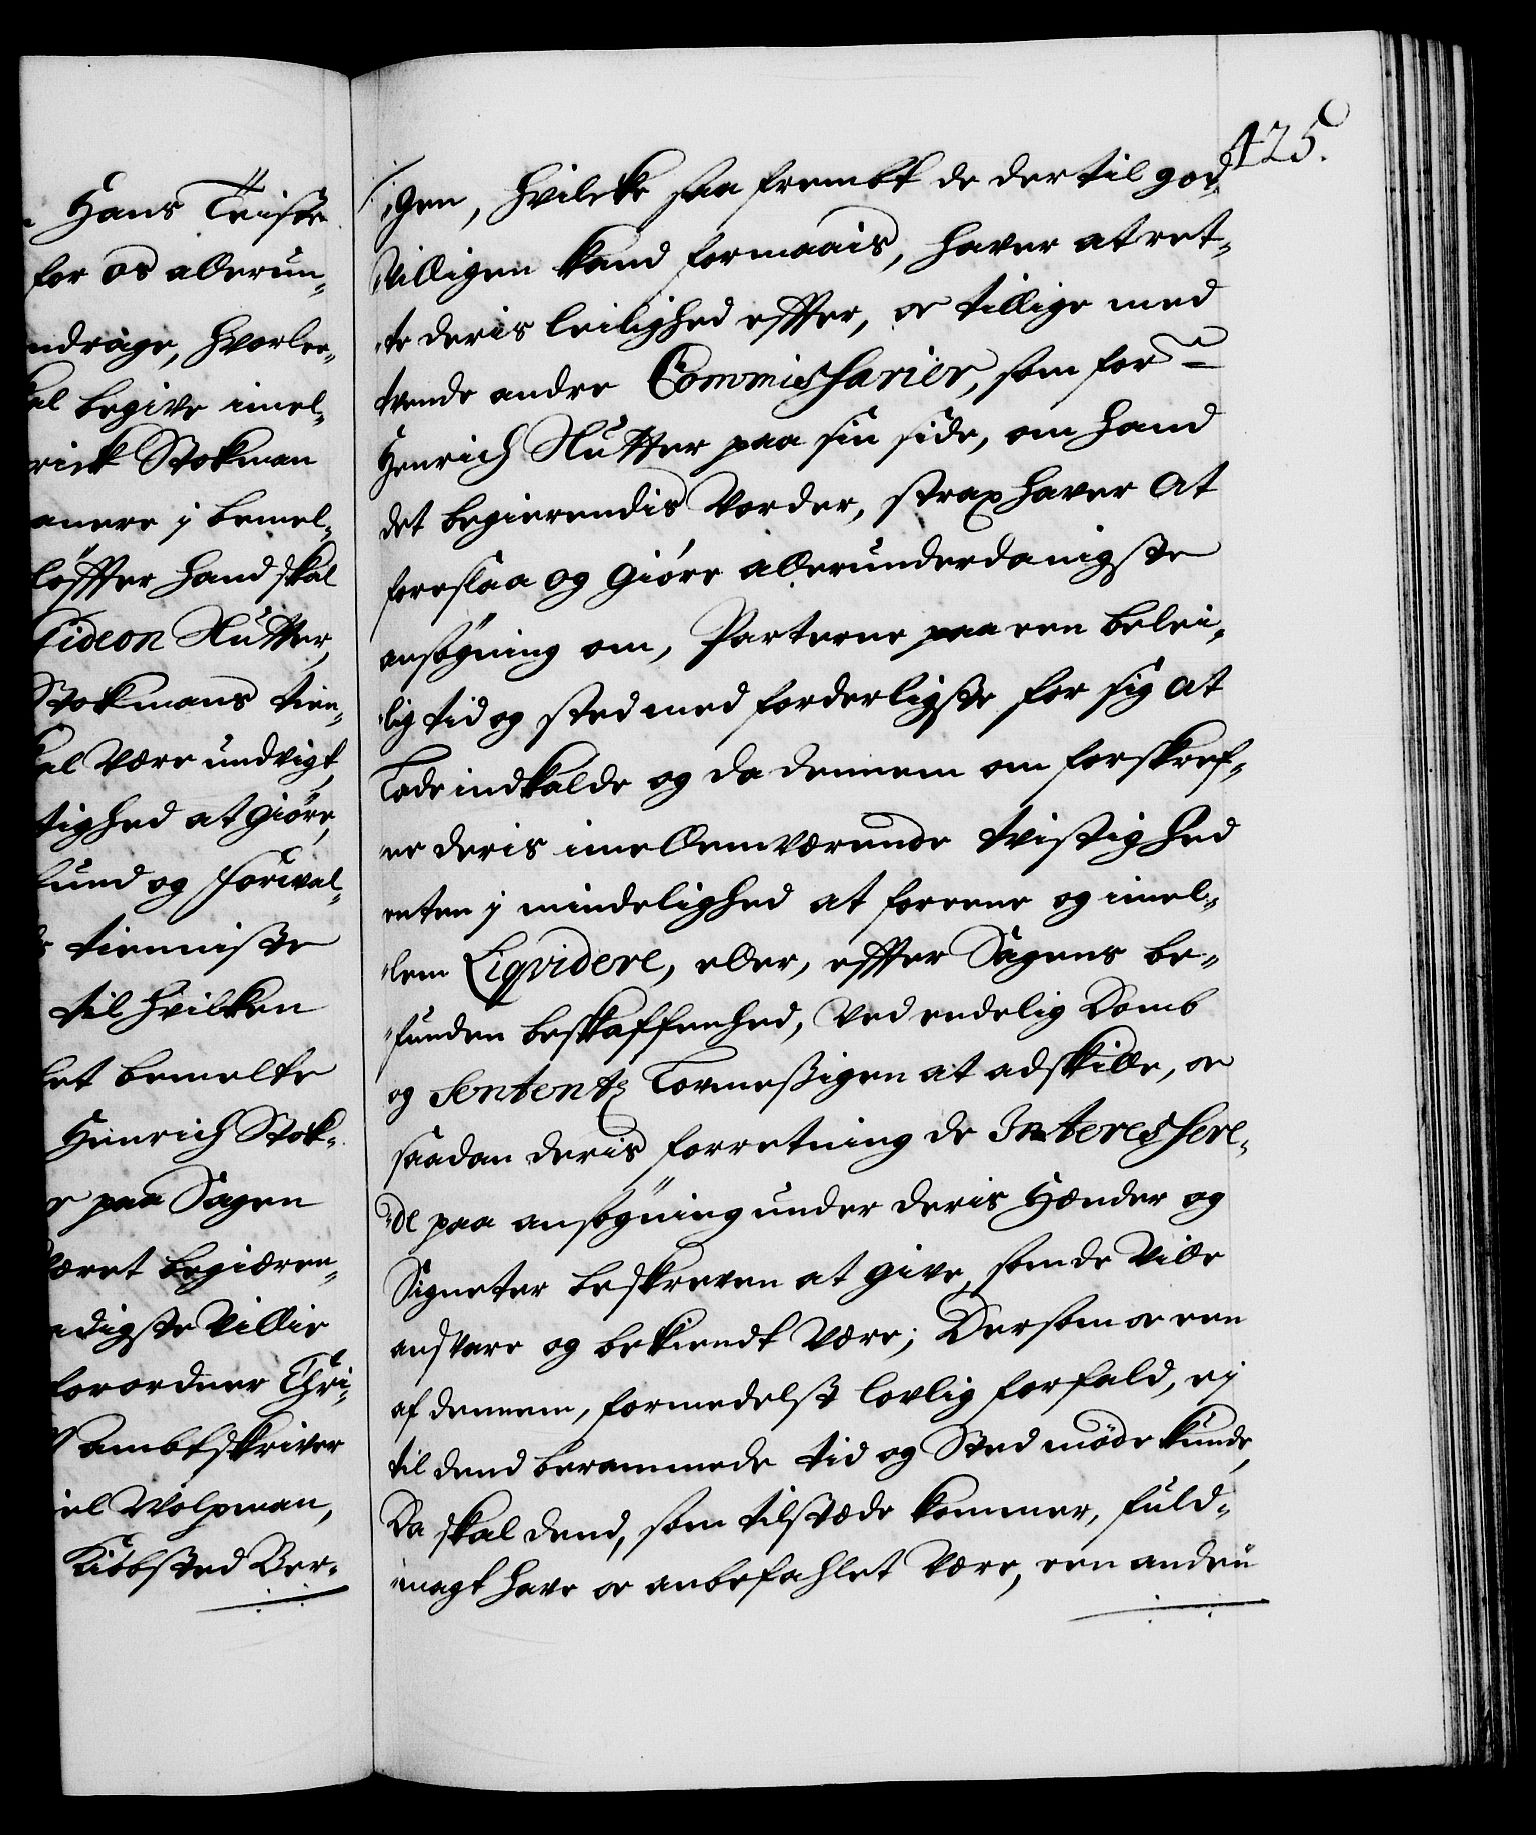 Hans Teiste
for os allerun-
ndrage, hvorle-
al begive imel-
rick Stokman
anere j bemel-
löffter hand skal
Gideon Nutter,
Stokmans tien-
al være undvigt,
tighed at giöre,
fund og forval-
tienniste
til hvilken
het bemelte
Henrich Stok-
paa Sagen
været begiæren-
digste Villie
forordner Chri-
Ambtskriver
iel Wolpman,
Kiöbsted Ber-
425.
gen, hvilcke saa frembt de dertil god
Villigen kand formaais, haver at ret-
te deris leilighed effter, oc tillige med
tvende andre Commissarier, som for-
Henrich Nutter paa sin side, om hand
det begierendis Vorder, strax haver at
foreslaa og giöre allerunderdanigste
ansögning om, Parterne paa een belei-
lig tid og sted med forderligste for sig at
Lade indkalde og da dennem om forskref-
ne deris imellemværende tvistighed
enten j mindelighed at foreene og imel-
lem Liqvidere, eller, effter Sagens be-
funden beskaffenhed, Ved endelig Domb
og Sententz Lovmeßigen at adskille, oc
saadan deris forretning de Interessere-
de paa ansögning under deris Hænder og
Signeter beskreven at give, som de Ville
andsvare og bekiendt Være; Dersom oc een
af dennem, formedelst lovlig forfald, ej
til dend berammede tid og Sted möde kunde,
Da skal dend, som tilstæde kommer, fuld-
magt have oc anbefahlet Være, een anden